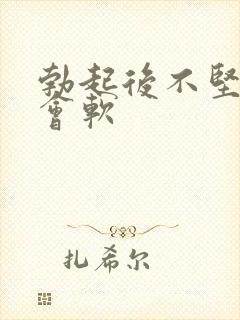 勃起後不堅
會軟
扎希尔